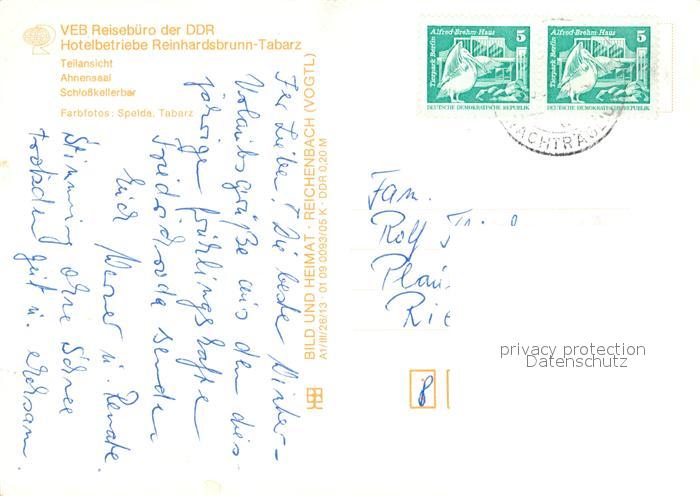 VEB Reisebüro der DDR
Hotelbetriebe Reinhardsbrunn-Tabarz
Teilansicht
Ahnensaal
Schloßkellerbar
Farbfotos: Spelda, Tabarz
BILD UND HEIMAT · REICHENBACH (VOGTL)
A1/III/26/13 01 09 0093/05 K · DDR 0,20 M
Ihr Lieben! Die besten Winter-
urlaubsgrüße aus den dies-
jährigen frühlingshaften
Friedrichroda senden
Euch Werner u. Renate.
Stimmung ohne Schnee
trotzdem gut u. erholsam.
Tierpark Berlin
Alfred-Brehm-Haus
5
DEUTSCHE DEMOKRATISCHE REPUBLIK
Tierpark Berlin
Alfred-Brehm-Haus
5
DEUTSCHE DEMOKRATISCHE REPUBLIK
Fam.
Rolf
8
privacy protection
Datenschutz